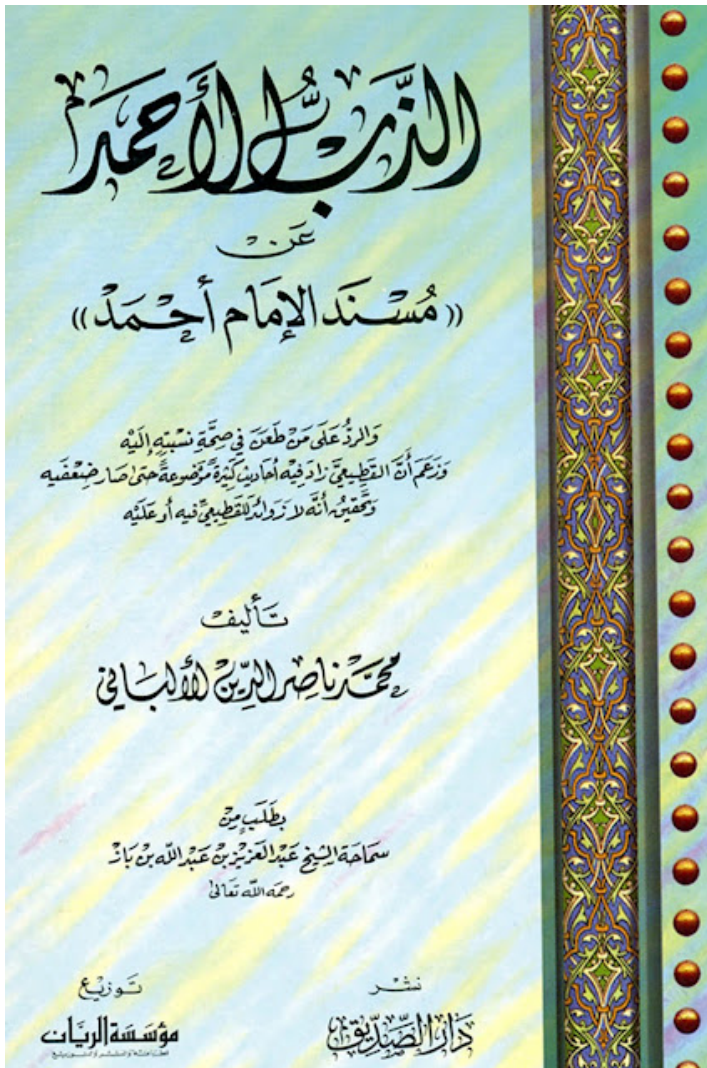 الذَّبُّ الأَحْمَدُ
عَنْ
«مُسْنَدِ الإِمَامِ أَحْمَدْ»
وَالرَدُّ عَلَى مَنْ طَعَنَ فِي صِحَّةِ نِسْبَتِهِ إِلَيْهِ
وَزَعَمَ أَنَّ القَطِيعِيَّ زَادَ فِيهِ أَحَادِيثَ كَثِيرَةً مَوْضُوعَةً حَتَى صَارَ ضِعْفَيه
وَتَحْقِيقُ أَنَّه لَا زَوَائِدَ لِلقَطِيعِيِّ فيه أو عَلَيْه
تَأليف
محمَّد ناصر الدِّين الألبَاني
بِطَلَبٍ مِنْ
سَمَاحَة الشِيخ عَبْد العَزِيزِ بْن عَبْد اللَّه بْن بَازْ
رحمه اللَّه تَعَالَى
نشر
دَارُ الصِّدِّيق
تَوزيع
مؤسَّسَة الريَّان
للطباعة والنشر والتوزيع